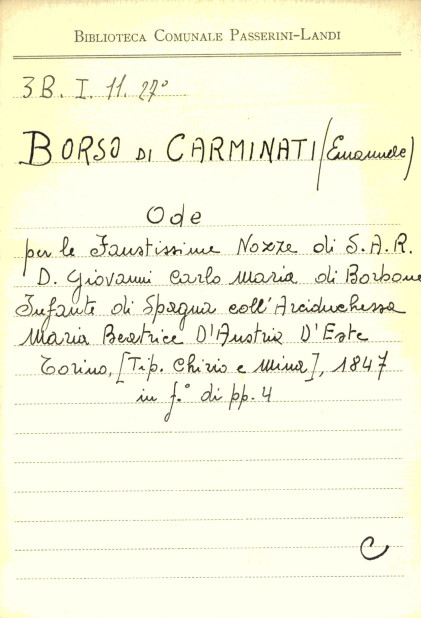 BIBLIOTECA COMUNALE PASSERINI-LANDI
3B. I. 11. 27°
BORSO DI CARMINATI (Emanuele)
Ode
per le Faustissime Nozze di S.A.R.
D. Giovanni Carlo Maria di Borbone
Infante di Spagna coll'Arciduchessa
Maria Beatrice D'Austria D'Este
Torino, [Tip. Chirio e Mina], 1847
in f.° di pp. 4
C